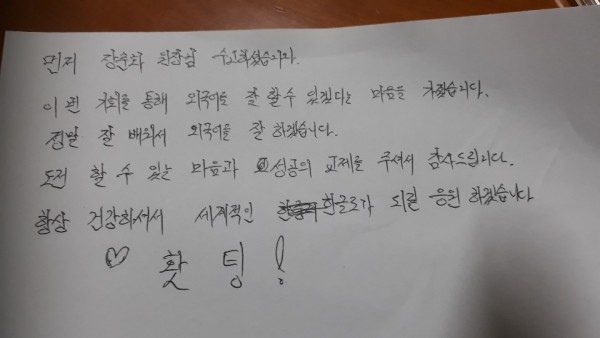 먼저 장운화 원장님 수고하셨습니다.
이번 기회를 통해 외국어를 잘 할 수 있겠다는 마음을 가졌습니다.
정말 잘 배워서 외국어를 잘 하겠습니다.
도전 할 수 있는 마음과 성공의 교재를 주셔서 감사드립니다.
항상 건강하셔서 세계적인 한글로가 되길 응원 하겠습니다
♡ 홧 팅 !